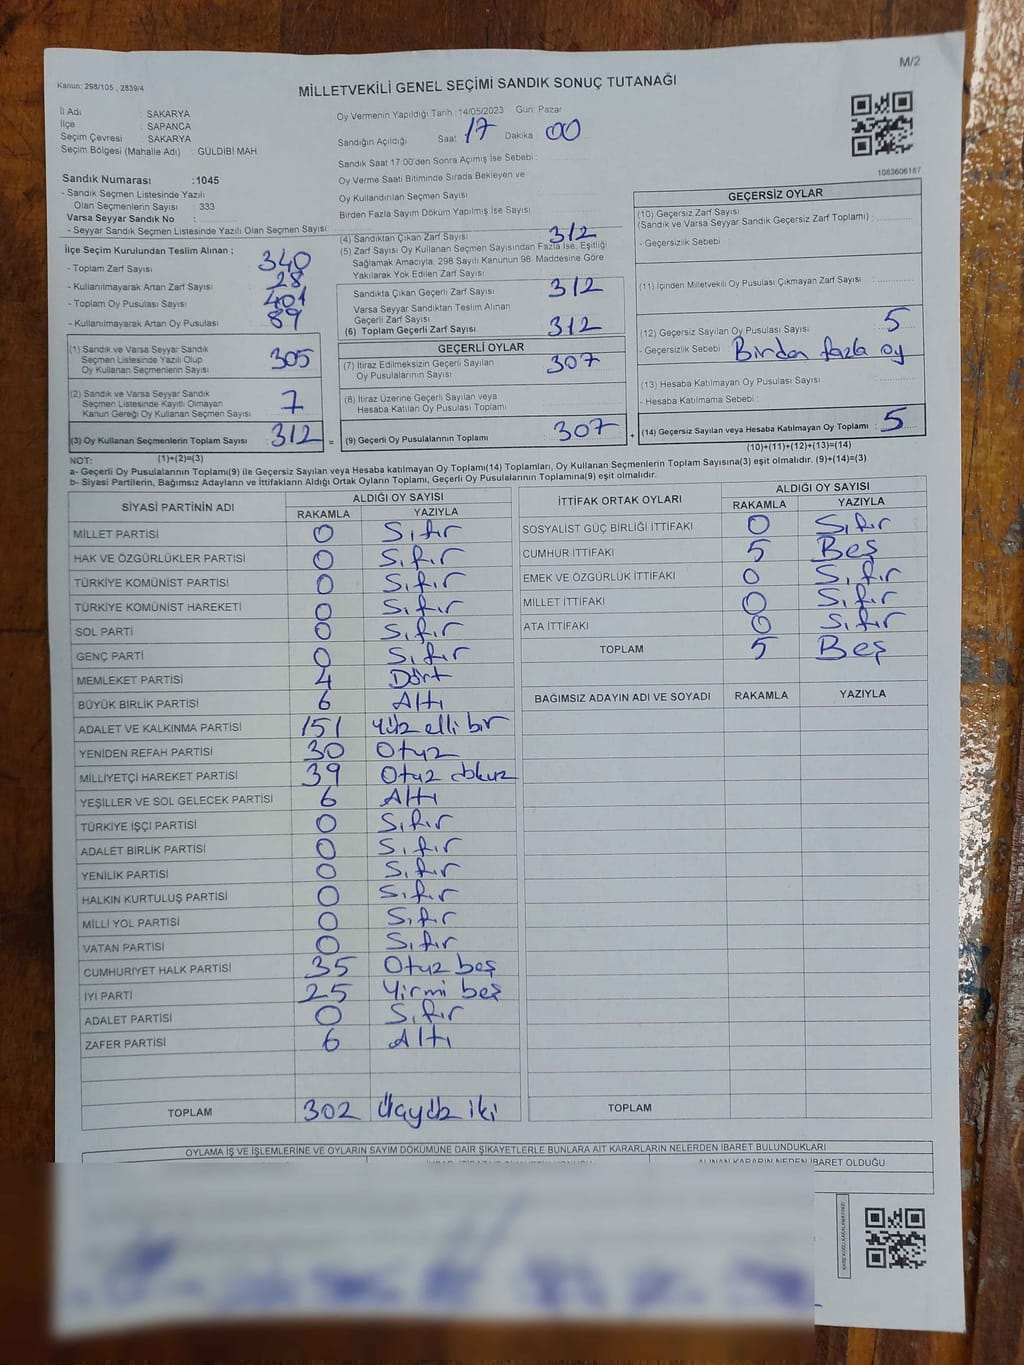 M/2
Kanun: 298/105 , 2839/4
MİLLETVEKİLİ GENEL SEÇİMİ SANDIK SONUÇ TUTANAĞI
İl Adı : SAKARYA
İlçe : SAPANCA
Seçim Çevresi : SAKARYA
Seçim Bölgesi (Mahalle Adı) : GÜLDİBİ MAH
Sandık Numarası :1045
- Sandık Seçmen Listesinde Yazılı
Olan Seçmenlerin Sayısı 333
Varsa Seyyar Sandık No :
- Seyyar Sandık Seçmen Listesinde Yazılı Olan Seçmen Sayısı
Oy Vermenin Yapıldığı Tarih :14/05/2023 Gün: Pazar
Sandığın Açıldığı Saat 17 Dakika 00
Sandık Saat 17:00'den Sonra Açmış İse Sebebi :
Oy Verme Saati Bitiminde Sırada Bekleyen ve
Oy Kullandırılan Seçmen Sayısı :
Birden Fazla Sayım Döküm Yapılmış İse Sayısı :
1083606187
İlçe Seçim Kurulundan Teslim Alınan ;
- Toplam Zarf Sayısı : 340
- Kullanılmayarak Artan Zarf Sayısı : 28
- Toplam Oy Pusulası Sayısı : 401
- Kullanılmayarak Artan Oy Pusulası : 89
(1) Sandık ve Varsa Seyyar Sandık
Seçmen Listesinde Yazılı Olup
Oy Kullanan Seçmenlerin Sayısı 305
(2) Sandık ve Varsa Seyyar Sandık
Seçmen Listesinde Kayıtlı Olmayan
Kanun Gereği Oy Kullanan Seçmen Sayısı 7
(3) Oy Kullanan Seçmenlerin Toplam Sayısı 312 =
(1)+(2)=(3)
(4) Sandıktan Çıkan Zarf Sayısı : 312
(5) Zarf Sayısı Oy Kullanan Seçmen Sayısından Fazla İse, Eşitliği
Sağlamak Amacıyla; 298 Sayılı Kanunun 98. Maddesine Göre
Yakılarak Yok Edilen Zarf Sayısı
Sandıkta Çıkan Geçerli Zarf Sayısı : 312
Varsa Seyyar Sandıktan Teslim Alınan
Geçerli Zarf Sayısı :
(6) Toplam Geçerli Zarf Sayısı : 312
GEÇERLİ OYLAR
(7) İtiraz Edilmeksizin Geçerli Sayılan
Oy Pusulalarının Sayısı : 307
(8) İtiraz Üzerine Geçerli Sayılan veya
Hesaba Katılan Oy Pusulası Toplamı :
(9) Geçerli Oy Pusulalarının Toplamı : 307 +
GEÇERSİZ OYLAR
(10) Geçersiz Zarf Sayısı
(Sandık ve Varsa Seyyar Sandık Geçersiz Zarf Toplamı) :
- Geçersizlik Sebebi :
(11) İçinden Milletvekili Oy Pusulası Çıkmayan Zarf Sayısı :
(12) Geçersiz Sayılan Oy Pusulası Sayısı : 5
- Geçersizlik Sebebi : Birden fazla oy
(13) Hesaba Katılmayan Oy Pusulası Sayısı :
- Hesaba Katılmama Sebebi :
(14) Geçersiz Sayılan veya Hesaba Katılmayan Oy Toplamı : 5
(10)+(11)+(12)+(13)=(14)
NOT:
a- Geçerli Oy Pusulalarının Toplamı(9) ile Geçersiz Sayılan veya Hesaba katılmayan Oy Toplamı(14) Toplamları, Oy Kullanan Seçmenlerin Toplam Sayısına(3) eşit olmalıdır. (9)+(14)=(3)
b- Siyasi Partilerin, Bağımsız Adayların ve İttifakların Aldığı Ortak Oyların Toplamı, Geçerli Oy Pusulalarının Toplamına(9) eşit olmalıdır.
SİYASİ PARTİNİN ADI ALDIĞI OY SAYISI
RAKAMLA YAZIYLA
MİLLET PARTİSİ 0 Sıfır
HAK VE ÖZGÜRLÜKLER PARTİSİ 0 Sıfır
TÜRKİYE KOMÜNİST PARTİSİ 0 Sıfır
TÜRKİYE KOMÜNİST HAREKETİ 0 Sıfır
SOL PARTİ 0 Sıfır
GENÇ PARTİ 0 Sıfır
MEMLEKET PARTİSİ 4 Dört
BÜYÜK BİRLİK PARTİSİ 6 Altı
ADALET VE KALKINMA PARTİSİ 151 Yüz elli bir
YENİDEN REFAH PARTİSİ 30 Otuz
MİLLİYETÇİ HAREKET PARTİSİ 39 Otuz dokuz
YEŞİLLER VE SOL GELECEK PARTİSİ 6 Altı
TÜRKİYE İŞÇİ PARTİSİ 0 Sıfır
ADALET BİRLİK PARTİSİ 0 Sıfır
YENİLİK PARTİSİ 0 Sıfır
HALKIN KURTULUŞ PARTİSİ 0 Sıfır
MİLLİ YOL PARTİSİ 0 Sıfır
VATAN PARTİSİ 0 Sıfır
CUMHURİYET HALK PARTİSİ 35 Otuz beş
İYİ PARTİ 25 Yirmi beş
ADALET PARTİSİ 0 Sıfır
ZAFER PARTİSİ 6 Altı
TOPLAM 302 Üçyüz iki
İTTİFAK ORTAK OYLARI ALDIĞI OY SAYISI
RAKAMLA YAZIYLA
SOSYALİST GÜÇ BİRLİĞİ İTTİFAKI 0 Sıfır
CUMHUR İTTİFAKI 5 Beş
EMEK VE ÖZGÜRLÜK İTTİFAKI 0 Sıfır
MİLLET İTTİFAKI 0 Sıfır
ATA İTTİFAKI 0 Sıfır
TOPLAM 5 Beş
BAĞIMSIZ ADAYIN ADI VE SOYADI RAKAMLA YAZIYLA
TOPLAM
OYLAMA İŞ VE İŞLEMLERİNE VE OYLARIN SAYIM DÖKÜMÜNE DAİR ŞİKAYETLERLE BUNLARA AİT KARARLARIN NELERDEN İBARET BULUNDUKLARI
ALINAN KARARIN NEDEN İBARET OLDUĞU